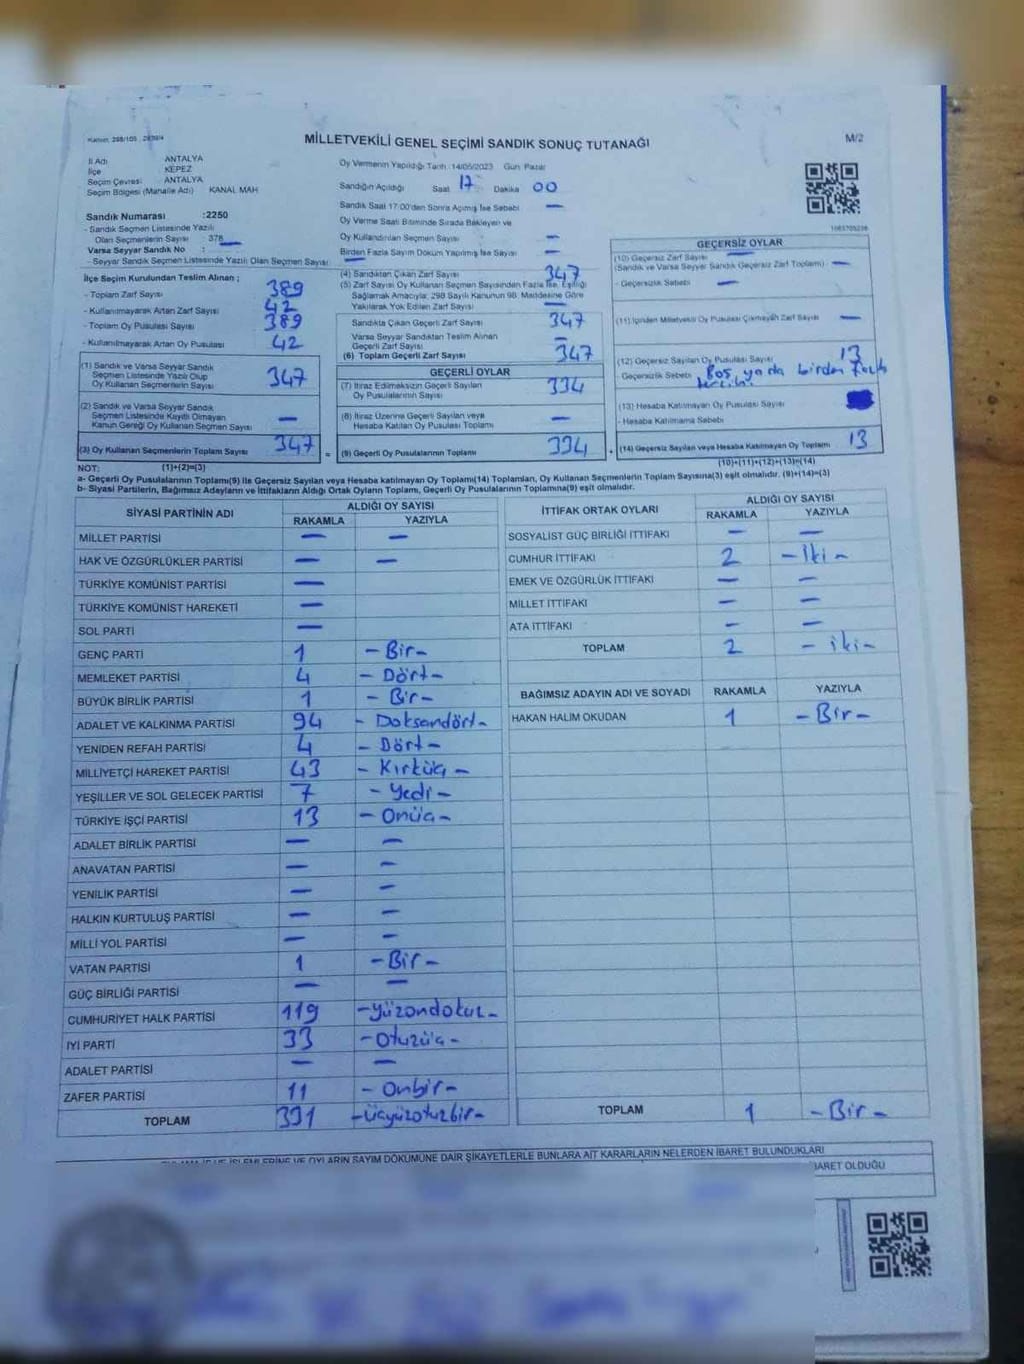 MİLLETVEKİLİ GENEL SEÇİMİ SANDIK SONUÇ TUTANAĞI
M/2
İl Adı ANTALYA
İlçe KEPEZ
Seçim Çevresi ANTALYA
Seçim Bölgesi (Mahalle Adı) KANAL MAH
Sandık Numarası :2250
- Sandık Seçmen Listesinde Yazılı
Olan Seçmenlerin Sayısı : 378
Varsa Seyyar Sandık No :
- Seyyar Sandık Seçmen Listesinde Yazılı Olan Seçmen Sayısı :
Oy Vermenin Yapıldığı Tarih :14/05/2023 Gün: Pazar
Sandığın Açıldığı Saat 17 Dakika 00
Sandık Saat 17:00'den Sonra Açılmış İse Sebebi —
Oy Verme Saati Bitiminde Sırada Bekleyen ve
Oy Kullandırılan Seçmen Sayısı —
Birden Fazla Sayım Döküm Yapılmış İse Sayısı —
İlçe Seçim Kurulundan Teslim Alınan ;
- Toplam Zarf Sayısı 389
- Kullanılmayarak Artan Zarf Sayısı 42
- Toplam Oy Pusulası Sayısı 389
- Kullanılmayarak Artan Oy Pusulası 42
(1) Sandık ve Varsa Seyyar Sandık
Seçmen Listesinde Yazılı Olup
Oy Kullanan Seçmenlerin Sayısı 347
(2) Sandık ve Varsa Seyyar Sandık
Seçmen Listesinde Kayıtlı Olmayan
Kanun Gereği Oy Kullanan Seçmen Sayısı —
(3) Oy Kullanan Seçmenlerin Toplam Sayısı 347
(4) Sandıktan Çıkan Zarf Sayısı 347
(5) Zarf Sayısı Oy Kullanan Seçmen Sayısından Fazla İse, Eşitliği
Sağlamak Amacıyla; 298 Sayılı Kanunun 98. Maddesine Göre
Yakılarak Yok Edilen Zarf Sayısı —
Sandıkta Çıkan Geçerli Zarf Sayısı 347
Varsa Seyyar Sandıktan Teslim Alınan
Geçerli Zarf Sayısı —
(6) Toplam Geçerli Zarf Sayısı 347
GEÇERLİ OYLAR
(7) İtiraz Edilmeksizin Geçerli Sayılan
Oy Pusulalarının Sayısı 334
(8) İtiraz Üzerine Geçerli Sayılan veya
Hesaba Katılan Oy Pusulası Toplamı —
(9) Geçerli Oy Pusulalarının Toplamı 334
GEÇERSİZ OYLAR
(10) Geçersiz Zarf Sayısı —
(Sandık ve Varsa Seyyar Sandık Geçersiz Zarf Toplamı) —
- Geçersizlik Sebebi —
(11) İçinden Milletvekili Oy Pusulası Çıkmayan Zarf Sayısı —
(12) Geçersiz Sayılan Oy Pusulası Sayısı 13
- Geçersizlik Sebebi Boş yada birden fazla
tercih
(13) Hesaba Katılmayan Oy Pusulası Sayısı
- Hesaba Katılmama Sebebi
(14) Geçersiz Sayılan veya Hesaba Katılmayan Oy Toplamı 13
NOT: (1)+(2)=(3)
(10)+(11)+(12)+(13)=(14)
a- Geçerli Oy Pusulalarının Toplamı(9) ile Geçersiz Sayılan veya Hesaba katılmayan Oy Toplamı(14) Toplamları, Oy Kullanan Seçmenlerin Toplam Sayısına(3) eşit olmalıdır. (9)+(14)=(3)
b- Siyasi Partilerin, Bağımsız Adayların ve İttifakların Aldığı Ortak Oyların Toplamı, Geçerli Oy Pusulalarının Toplamına(9) eşit olmalıdır.
SİYASİ PARTİNİN ADI ALDIĞI OY SAYISI
RAKAMLA YAZIYLA
MİLLET PARTİSİ — —
HAK VE ÖZGÜRLÜKLER PARTİSİ — —
TÜRKİYE KOMÜNİST PARTİSİ —
TÜRKİYE KOMÜNİST HAREKETİ —
SOL PARTİ —
GENÇ PARTİ 1 - Bir -
MEMLEKET PARTİSİ 4 - Dört -
BÜYÜK BİRLİK PARTİSİ 1 - Bir -
ADALET VE KALKINMA PARTİSİ 94 - Doksandört -
YENİDEN REFAH PARTİSİ 4 - Dört -
MİLLİYETÇİ HAREKET PARTİSİ 43 - Kırküç -
YEŞİLLER VE SOL GELECEK PARTİSİ 7 - Yedi -
TÜRKİYE İŞÇİ PARTİSİ 13 - Onüç -
ADALET BİRLİK PARTİSİ — —
ANAVATAN PARTİSİ — —
YENİLİK PARTİSİ — —
HALKIN KURTULUŞ PARTİSİ — —
MİLLİ YOL PARTİSİ — —
VATAN PARTİSİ 1 - Bir -
GÜÇ BİRLİĞİ PARTİSİ — —
CUMHURİYET HALK PARTİSİ 119 - yüzondokuz -
İYİ PARTİ 33 - Otuzüç -
ADALET PARTİSİ — —
ZAFER PARTİSİ 11 - Onbir -
TOPLAM 331 - üçyüzotuzbir -
İTTİFAK ORTAK OYLARI ALDIĞI OY SAYISI
RAKAMLA YAZIYLA
SOSYALİST GÜÇ BİRLİĞİ İTTİFAKI — —
CUMHUR İTTİFAKI 2 - İki -
EMEK VE ÖZGÜRLÜK İTTİFAKI — —
MİLLET İTTİFAKI — —
ATA İTTİFAKI — —
TOPLAM 2 - iki -
BAĞIMSIZ ADAYIN ADI VE SOYADI RAKAMLA YAZIYLA
HAKAN HALİM OKUDAN 1 - Bir -
TOPLAM 1 - Bir -
İŞLEMLERİNE VE OYLARIN SAYIM DÖKÜMÜNE DAİR ŞİKAYETLERLE BUNLARA AİT KARARLARIN NELERDEN İBARET BULUNDUKLARI
İBARET OLDUĞU